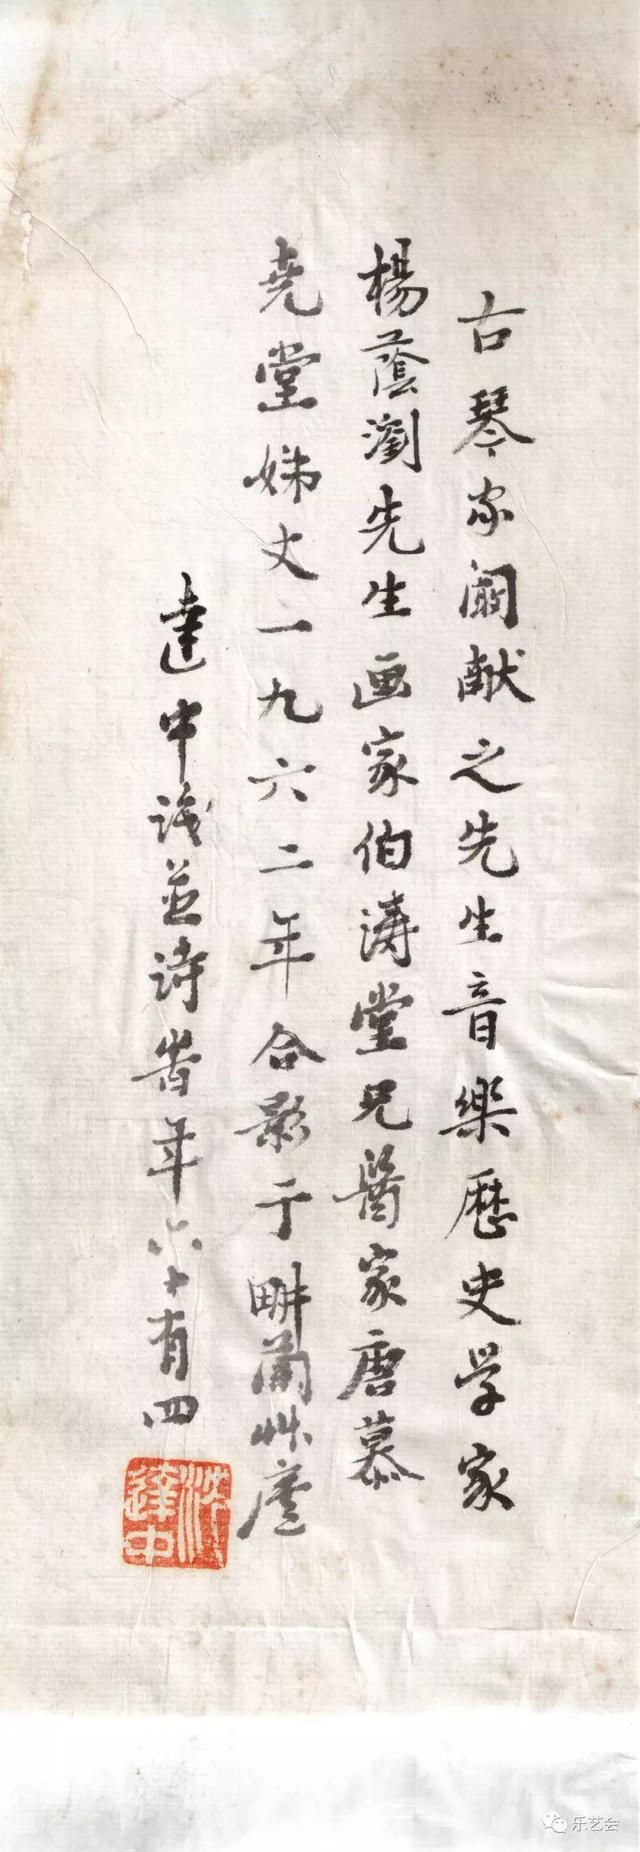 古琴家阚献之先生音樂厯史学家
楊蔭瀏先生画家伯濤堂兄醫家唐慕
尧堂姊丈一九六二年合影于畊蘭艸廬
達中識並詩旹年六十有四
達中
乐艺会